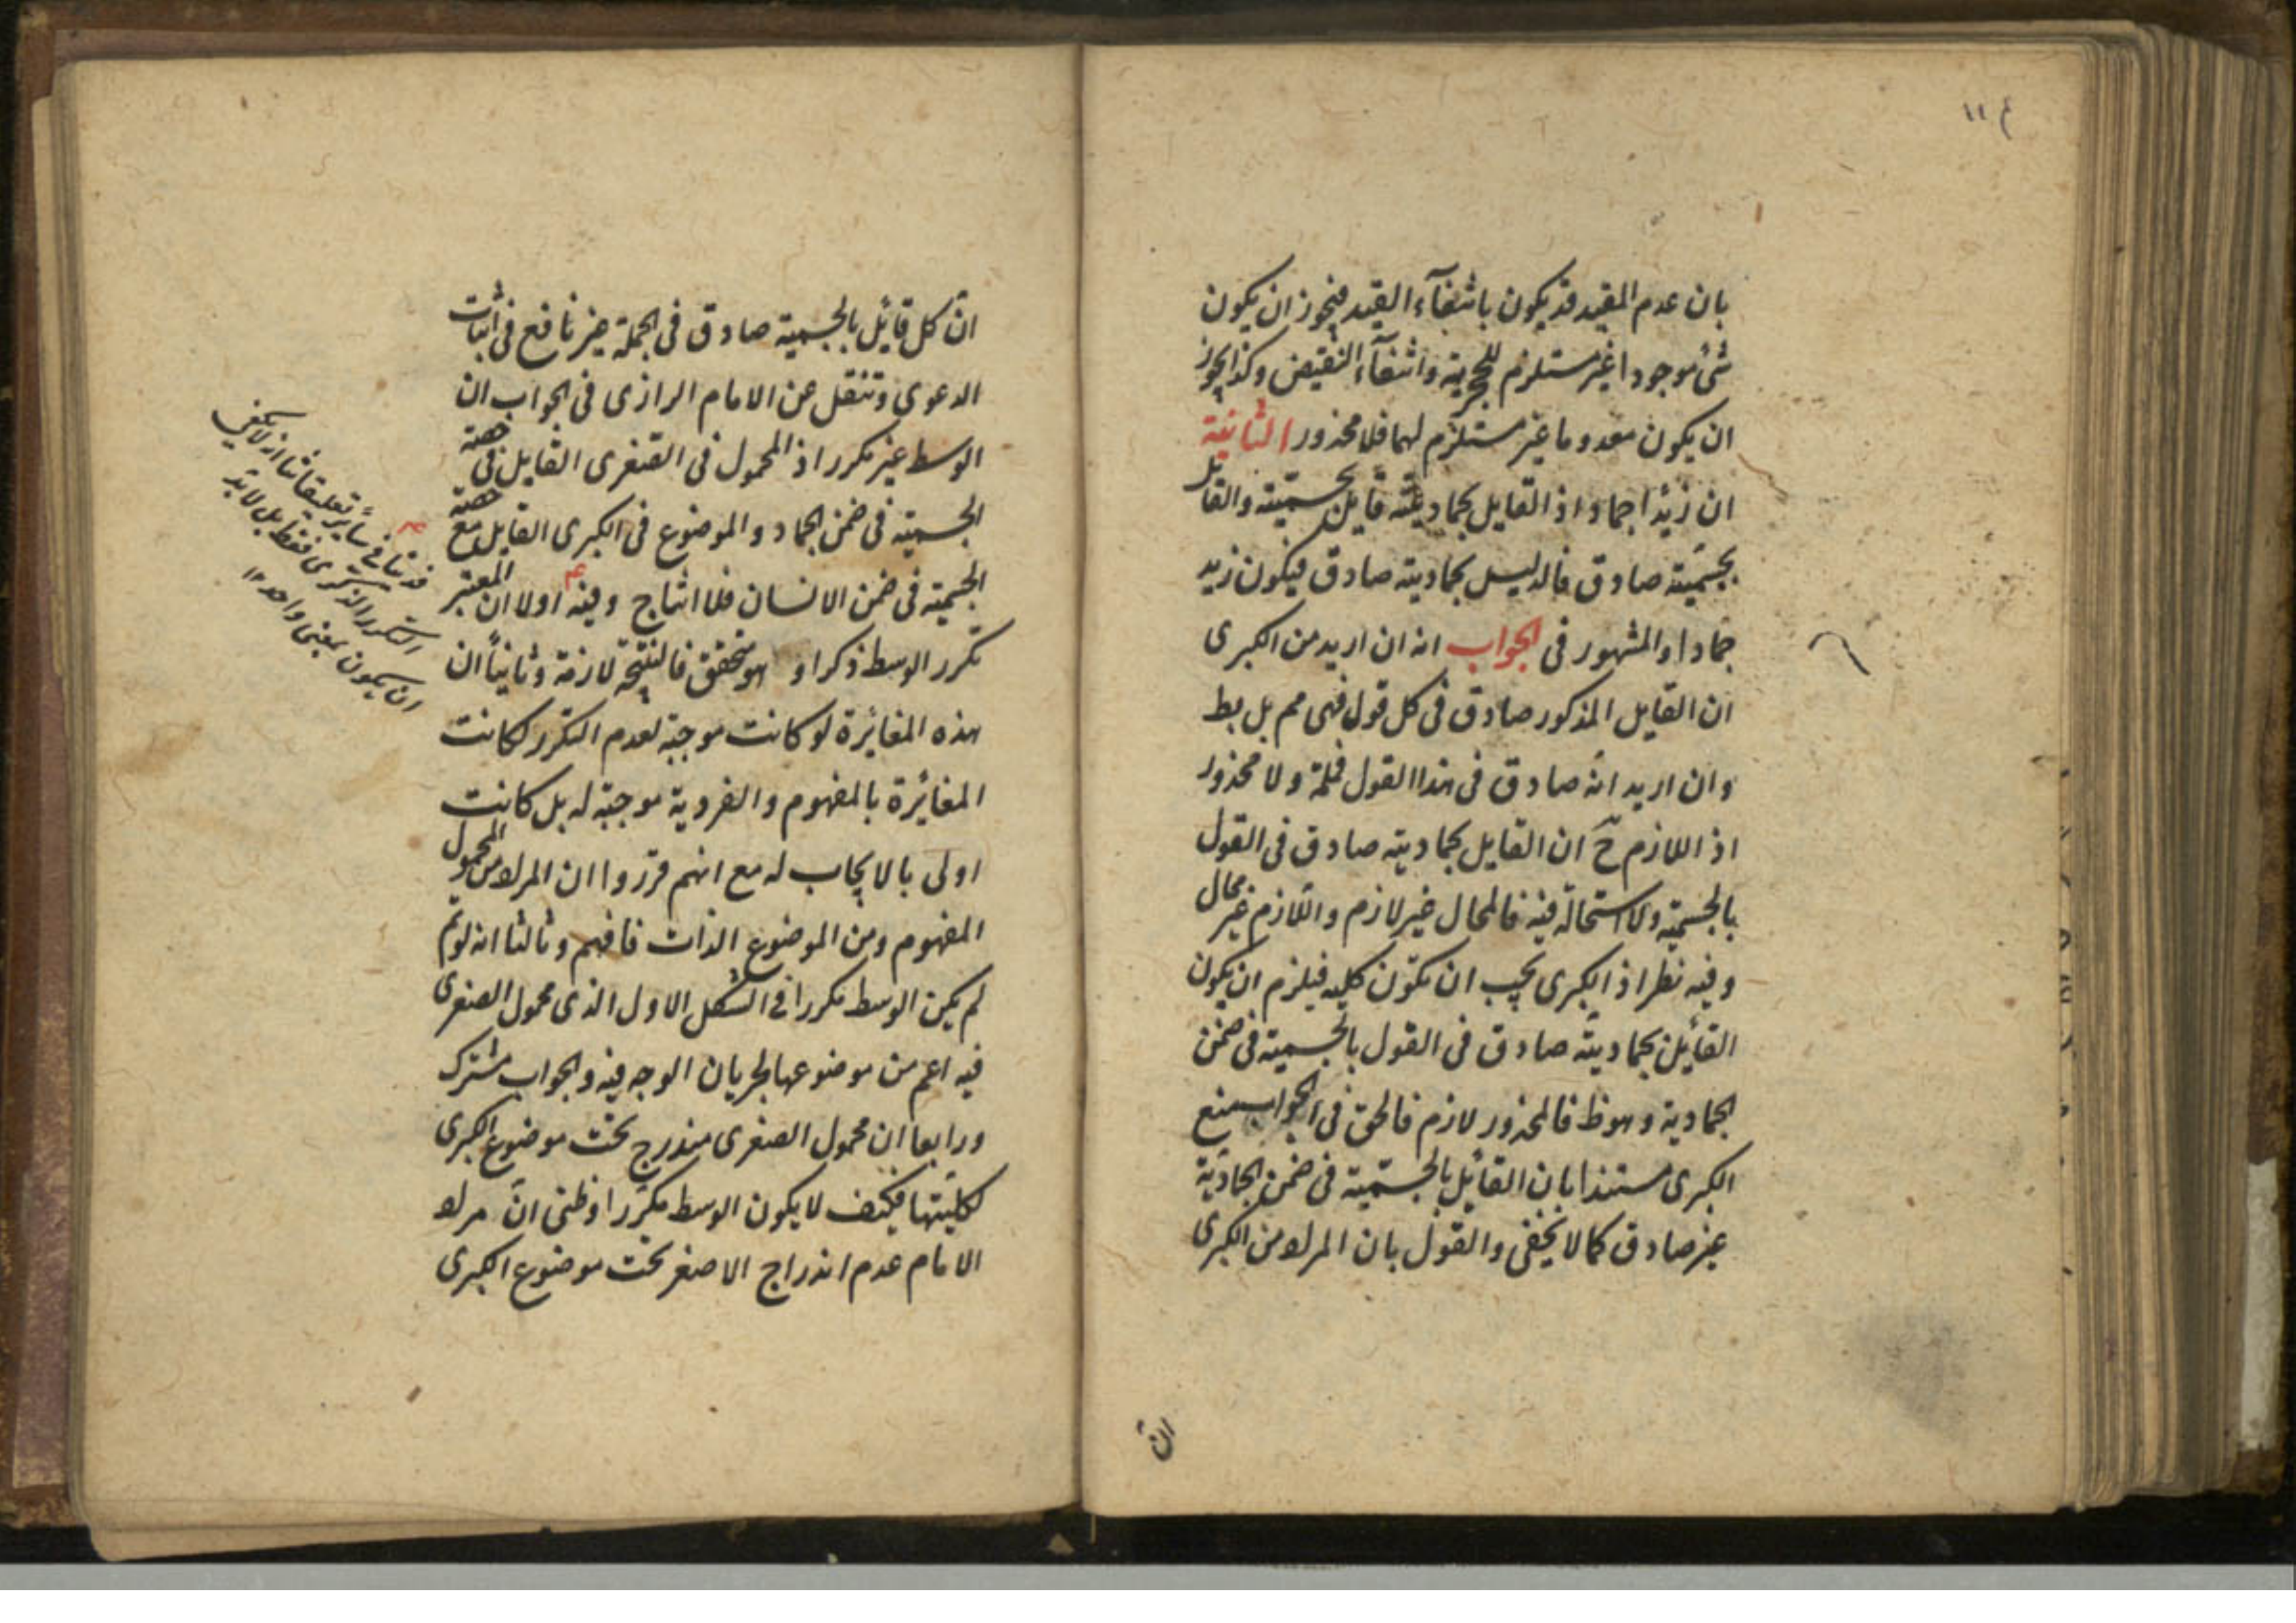 ١١
بان عدم المقيد قد يكون بانتفآء القيد فيجوز ان يكون
شئ موجودا غير مستلزم للحجرية وانتفآء النقيض وكذا يجوز
ان يكون معدوما غير مستلزم لهما فلا محذور الثانية
ان زيدا جماد اذ القايل بجماديته قايل بجسميته والقايل
بجسميته صادق فالقايل بجماديته صادق فيكون زيد
جمادا والمشهور فى الجواب انه ان اريد من الكبرى
ان القايل المذكور صادق فى كل قول فهى مم بل بط
وان اريد انه صادق فى هذا القول فمسلمة ولا محذور
اذ اللازم ح ان القايل بجماديته صادق فى القول
بالجسمية ولا استحالة فيه فالمحال غير لازم واللازم غير محال
وفيه نظر اذ الكبرى يجب ان تكون كلية فيلزم ان يكون
القايل بجماديته صادق فى القول بالجسمية فى ضمن
الجمادية وهو ظ فالمحذور لازم فالحق فى الجواب منع
الكبرى مستندا بان القايل بالجسمية فى ضمن الجمادية
غير صادق كما لا يخفى والقول بان المراد من الكبرى
ان
ان كل قايل بالجسمية صادق فى الجملة غير نافع فى اثبات
الدعوى وتنقل عن الامام الرازى فى الجواب ان
الوسط غير مكرر اذ المحمول فى الصغرى القايل فى حصة
الجسمية فى ضمن الجماد والموضوع فى الكبرى القايل مع حصة
الجسمية فى ضمن الانسان فلا انتاج وفيه اولا ان المعتبر
تكرر الوسط ذكرا وهو متحقق فالنتيجة لازمة وثانيا ان
هذه المغايرة لو كانت موجبة لعدم التكرر لكانت
المغايرة بالمفهوم والفردية موجبة له بل كانت
اولى بالايجاب له مع انهم قرروا ان المراد من المحمول
المفهوم ومن الموضوع الذات فافهم وثالثا انه لو تم
لم يكن الوسط مكررا فى الشكل الاول الذى محمول الصغرى
فيه اعم من موضوعها لجريان الوجه فيه والجواب مشترك
ورابعا ان محمول الصغرى مندرج تحت موضوع الكبرى
لكليتها فكيف لا يكون الوسط مكررا وظنى ان مراد
الامام عدم اندراج الاصغر تحت موضوع الكبرى
فى ساير تعليقاتنا انه لا يكفى
التكرر الذكرى فقط بل لا بد
ان يكون بمعنى واحد ١٢